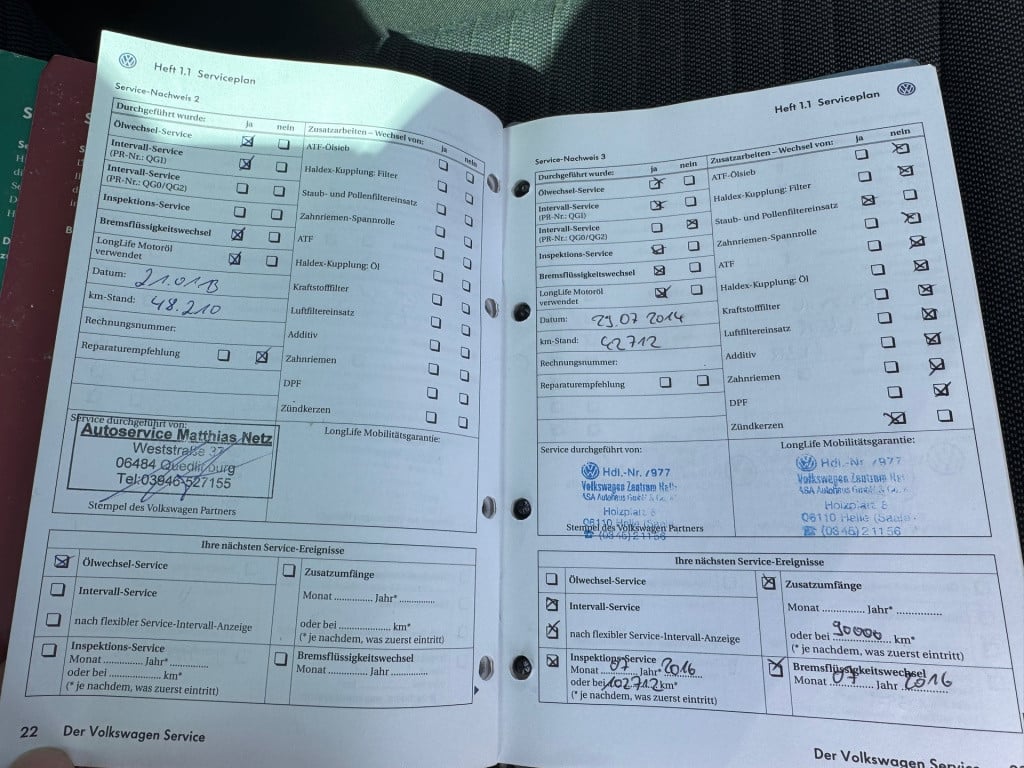 Heft 1.1 Serviceplan
Service-Nachweis 2
Durchgeführt wurde: ja nein
Ölwechsel-Service
Intervall-Service
(PR-Nr.: QG1)
Intervall-Service
(PR-Nr.: QG0/QG2)
Inspektions-Service
Bremsflüssigkeitswechsel
LongLife Motoröl
verwendet
Datum: 21.01.13
km-Stand: 48.210
Rechnungsnummer:
Reparaturempfehlung
Zusatzarbeiten – Wechsel von: ja nein
ATF-Ölsieb
Haldex-Kupplung: Filter
Staub- und Pollenfiltereinsatz
Zahnriemen-Spannrolle
ATF
Haldex-Kupplung: Öl
Kraftstofffilter
Luftfiltereinsatz
Additiv
Zahnriemen
DPF
Zündkerzen
Service durchgeführt von:
Autoservice Matthias Netz
Weststraße 37
06484 Quedlinburg
Tel:03946-527155
Stempel des Volkswagen Partners
LongLife Mobilitätsgarantie:
Ihre nächsten Service-Ereignisse
Ölwechsel-Service
Intervall-Service
nach flexibler Service-Intervall-Anzeige
Inspektions-Service
Monat ................ Jahr* ................
oder bei ................ km*
(* je nachdem, was zuerst eintritt)
Zusatzumfänge
Monat ............. Jahr* .............
oder bei ................ km*
(* je nachdem, was zuerst eintritt)
Bremsflüssigkeitswechsel
Monat ............... Jahr ...............
22 Der Volkswagen Service
Heft 1.1 Serviceplan
Service-Nachweis 3
Durchgeführt wurde: ja nein
Ölwechsel-Service
Intervall-Service
(PR-Nr.: QG1)
Intervall-Service
(PR-Nr.: QG0/QG2)
Inspektions-Service
Bremsflüssigkeitswechsel
LongLife Motoröl
verwendet
Datum: 29.07 2014
km-Stand: 42712
Rechnungsnummer:
Reparaturempfehlung
Zusatzarbeiten – Wechsel von: ja nein
ATF-Ölsieb
Haldex-Kupplung: Filter
Staub- und Pollenfiltereinsatz
Zahnriemen-Spannrolle
ATF
Haldex-Kupplung: Öl
Kraftstofffilter
Luftfiltereinsatz
Additiv
Zahnriemen
DPF
Zündkerzen
Service durchgeführt von:
Hdl.-Nr 7977
Volkswagen Zentrum
ASA Autohaus GmbH & Co.
Holzplatz 8
06110 Halle (Saale)
Stempel des Volkswagen Partners
LongLife Mobilitätsgarantie:
Hdl.-Nr 7977
Volkswagen Zentrum
ASA Autohaus GmbH & Co.
Holzplatz 8
06110 Halle (Saale)
Ihre nächsten Service-Ereignisse
Ölwechsel-Service
Intervall-Service
nach flexibler Service-Intervall-Anzeige
Inspektions-Service
Monat 07 Jahr* 2016
oder bei 102712 km*
(* je nachdem, was zuerst eintritt)
Zusatzumfänge
Monat .............. Jahr* ..............
oder bei 90000 km*
(* je nachdem, was zuerst eintritt)
Bremsflüssigkeitswechsel
Monat 07 Jahr 2016
Der Volkswagen Service